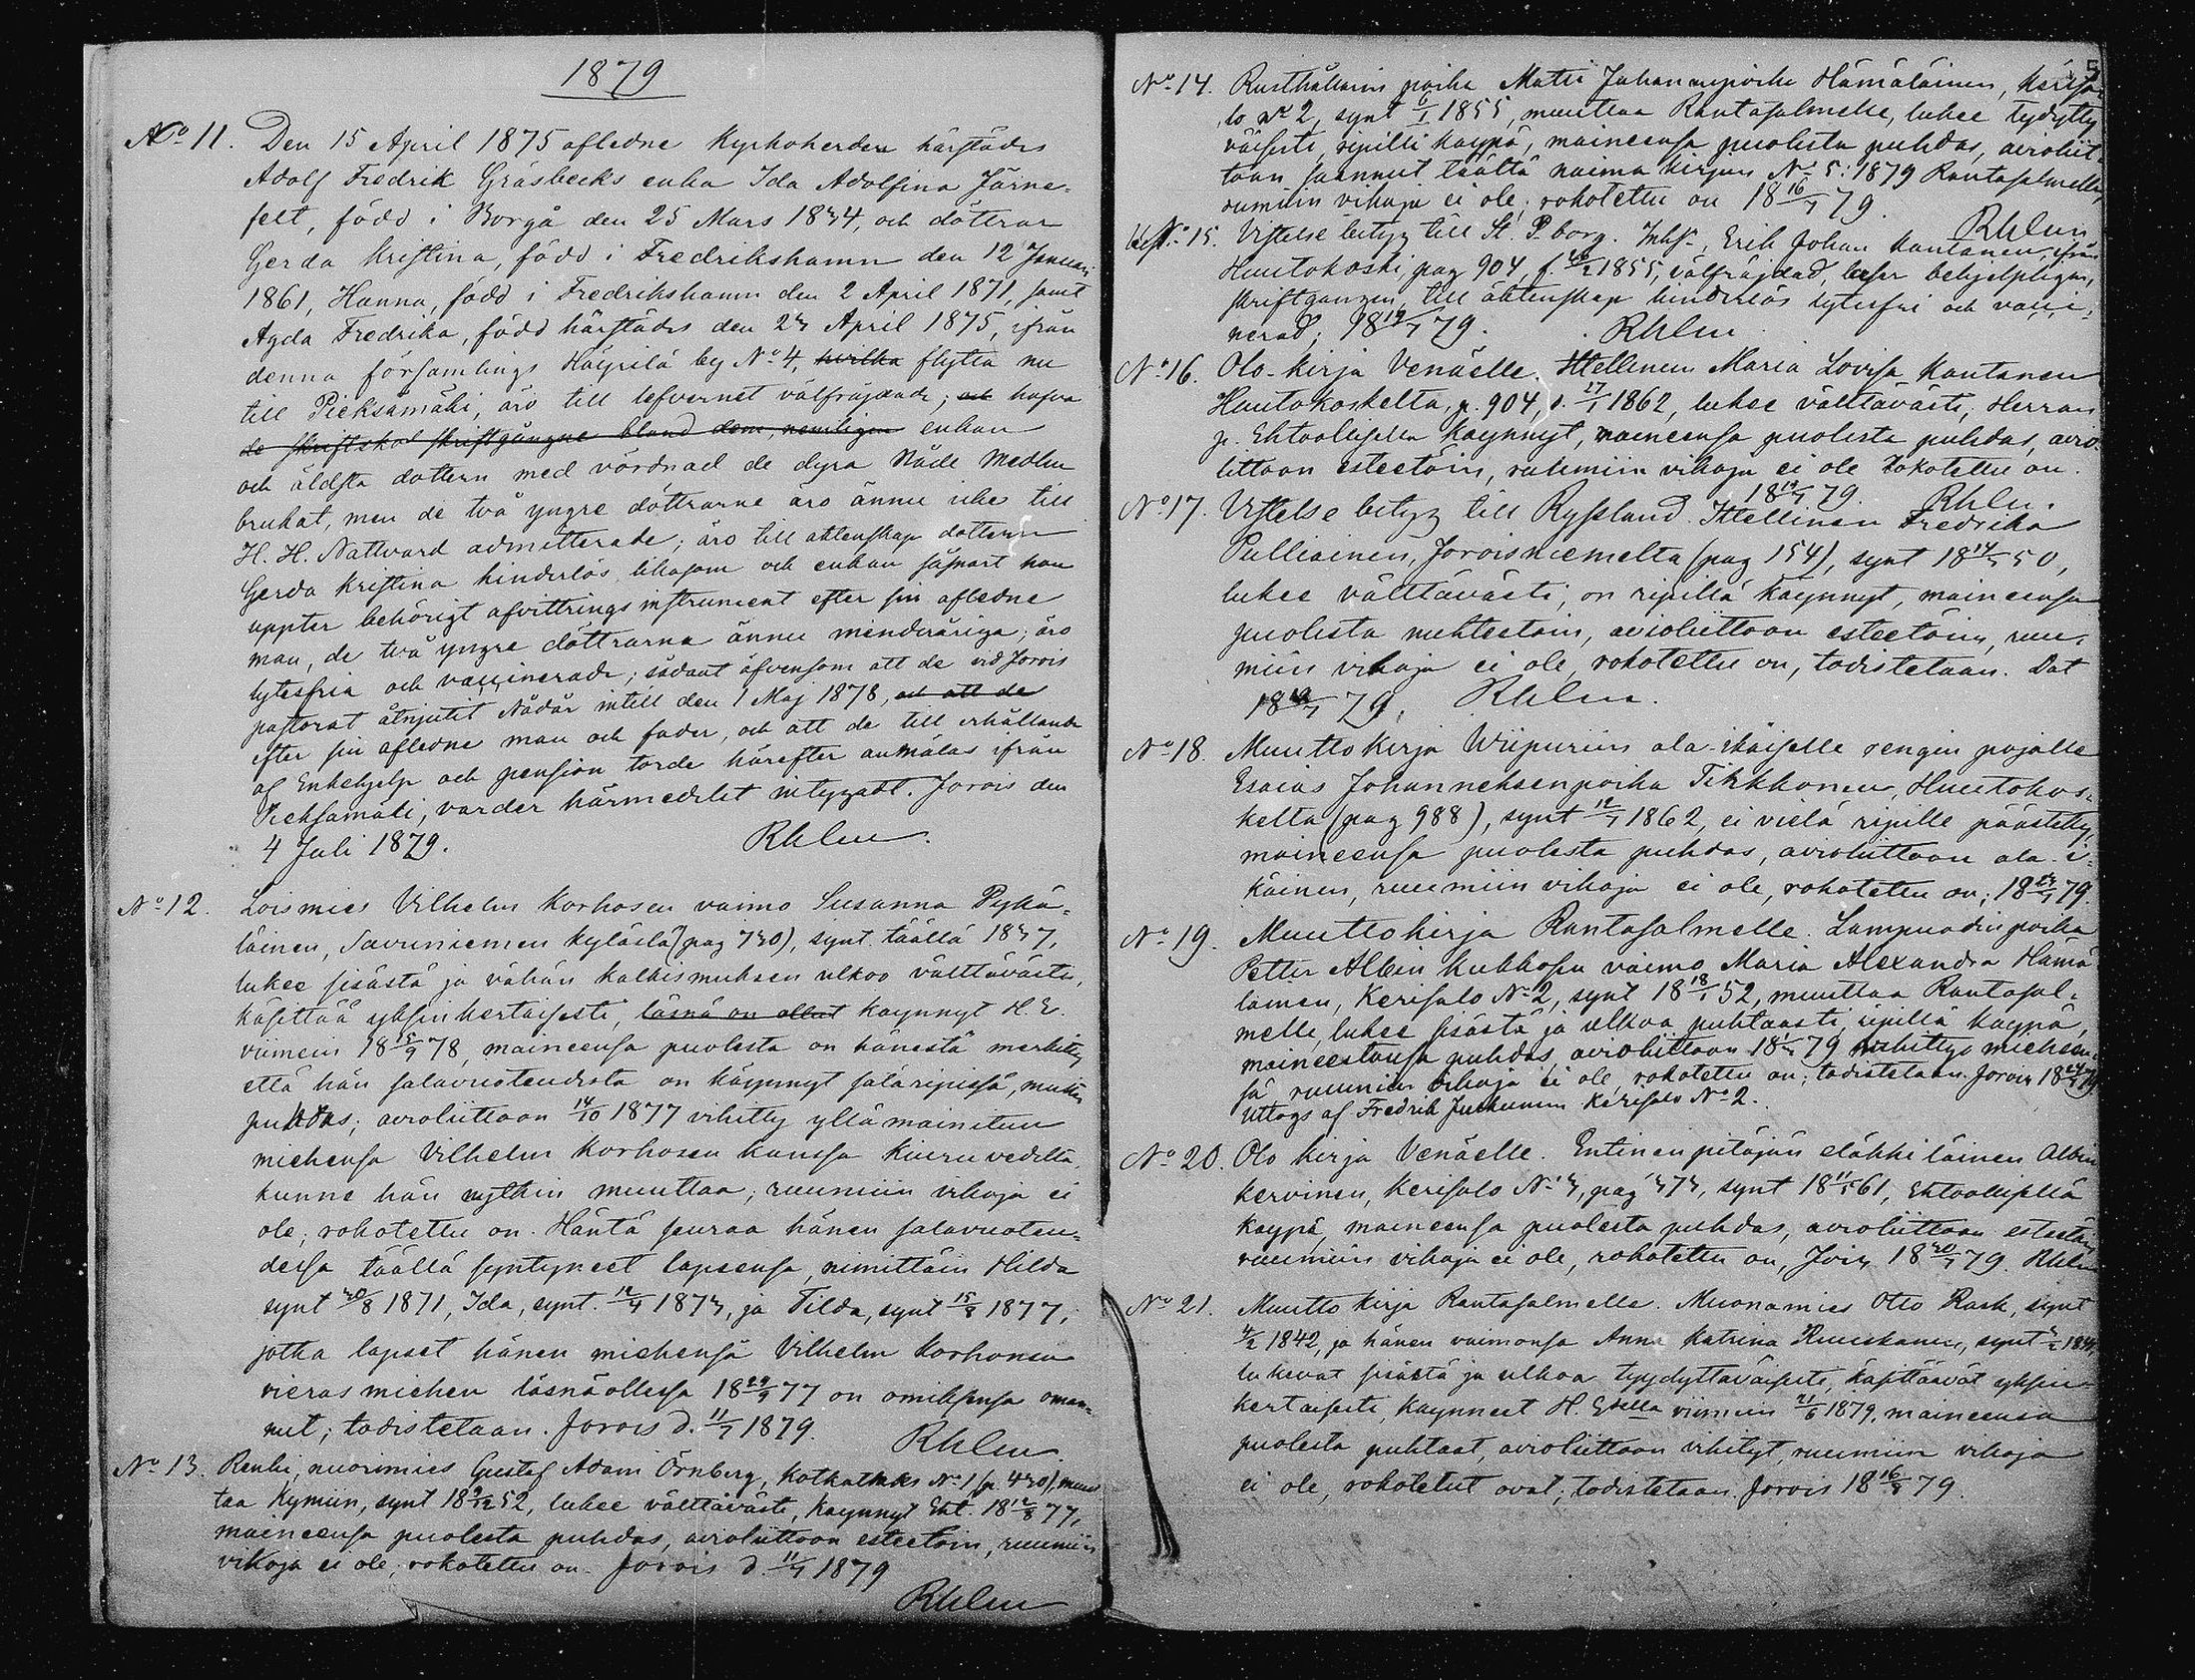 1879
No 11. Den 15 April 1875 afledne Kyrkoherden härstädes
Adolf Fredrik Gråsbecks enka Ida Adolfina Järne-
felt, född i Borgå den 25 Mars 1834, och döttrar
Gerda Kristina, född i Fredrikshamn den 12 Januari
1861, Hanna, född i Fredrikshamn den 2 April 1871, samt
Agda Fredrika, född härstädes den 23 April 1875, ifrån
denna församlings Häyrilä by No 4, hvilka flytta nu
till Pieksämäki, äro till lefvernet välfräjdade; och hafva
de skriftskol skriftgångne bland dem, nemligen enkan
och äldsta dottern med vördnad de dyra Nåde Medlen
brukat, men de två yngre döttrarne äro ännu icke till
H. H. Nattvard admitterade; äro till äktenskap dottern
Gerda Kristina hinderlös likasom och enkan såsnart hon
uppter behörigt afvittringsinstrument efter sin aflednе
man, de två yngre döttrarna ännu minderåriga; äro
lytesfria och vaccinerade; sådant äfvensom att de vid Jorois
pastorat åtnjutit Nådår intill den 1 Maj 1878, och att de
efter sin aflednе man och fader, och att de till erhållande
af Enkehjelp och pension torde härefter anmälas ifrån
Pieksämäki, varder härmedelst intygadt. Jorois den
4 Juli 1879. Rhlen.
No 12. Loismies Vilhelm Korhosen vaimo Susanna Pykä-
läinen, Savuniemen kylästä (pag 730), synt. täällä 1837,
lukee sisästä ja vähän katkismuksen ulkoo välttävästi,
käsittää yksinkertaisesti, läsnä on ollut käynnyt H. E.
viimein 18 15/9 78, maineensa puolesta on hänestä merkitty
että hän salavuoteudesta on käynnyt salaripissä, muuten
puhdas; avioliittoon 14/10 1877 vihitty yllämainitun
miehensä Vilhelm Korhosen kanssa Kiuruvedeltä,
kunne hän nytkin muuttaa; ruumiin vikoja ei
ole; rokotettu on. Häntä seuraa hänen salavuoteu-
dessa täällä syntyneet lapsensa, nimittäin Hilda
synt 30/8 1871, Ida, synt. 12/4 1873, ja Tilda, synt 15/8 1877,
jotka lapset hänen miehensä Vilhelm Korhonen
vierasmiehen läsnäollessa 18 29/9 77 on omiksensa oman-
nut; todistetaan. Jorois d. 11/7 1879. Rhlen
No 13. Renki, nuorimies Gustaf Adam Örnberg, Kotkatlahti No 1 (p. 430), muut
taa Kymiin, synt 18 9/12 52, lukee välttävästi, käynnyt Eht. 18 12/8 77,
maineensa puolesta puhdas, avioliittoon esteetöin, ruumiin
vikoja ei ole; rokotettu on. Jorois d. 11/7 1879
Rhlen
5
No 14. Rusthållarin poika Matti Juhananpoika Hämäläinen, Kerisa-
lo No 2, synt 6/1 1855, muuttaa Rantasalmelle, lukee tydytty
väisesti, ripillä käypä, maineensa puolesta puhdas, avioliit-
toon saannut täältä naima kirjan No 5: 1879 Rantasalmelle,
rumiin vikoja ei ole; rokotettu on 18 16/7 79. Rhlen
No 15. Vistelse betyg till St. P. borg. Inhs., Erik Johan Kautanen, ifrån
Huutokoski, pag 904, f. 1855, välfräjdad, läser behjelpligen,
skriftgången, till äktenskap hinderlös lytesfri och vacci-
nerad; 18 19/7 79. Rhlen
No 16. Olo-kirja Venäelle. Itellinen Maria Lovisa Kautanen
Huutokoskelta, p. 904, s. 27/1 1862, lukee välttävästi, Herran
p. Ehtoollisella käynnyt, maineensa puolesta puhdas, avio-
liittoon esteetöin, ruumiin vikoja ei ole rokotettu on.
18 19/7 79. Rhlen.
No 17. Vistelse betyg till Ryssland. Itellinen Fredrika
Pulliainen, Joroisniemeltä (pag 154), synt 18 14/5 50,
lukee välttävästi, on ripillä käynnyt, maineensa
puolesta nuhteetoin, avioliittoon esteetöin, ruu-
miin vikoja ei ole, rokotettu on, todistetaan. Dat
18 19/7 79, Rhlen.
No 18. Muuttokirja Wiipuriin ala-ikäiselle rengin pojalle
Esaias Johanneksenpoika Tikkonen, Huutokos-
kelta (pag 988), synt 12/7 1862, ei vielä ripille päästetty,
maineensa puolesta puhdas, avioliittoon ala-i-
käinen, ruumiin vikoja ei ole, rokotettu on; 18 23/7 79.
No 19. Muuttokirja Rantasalmelle. Lampuodin poika
Petter Albin Kukkosen vaimo Maria Alexandra Hämä
läinen, Kerisalo No 2, synt 18 18/1 52, muuttaa Rantasal-
melle, lukee sisästä ja ulkoa puhtaasti, ripillä käypä,
maineestansa puhdas, avioliittoon 79 vihitty miehen-
sä ruumiin vikoja ei ole, rokotettu on; todistetaan. Jorois 18 79
Uttogs af Fredrik Juckunen Kerisalo No 2.
No 20. Olo kirja Venäelle. Entinen pitäjän eläkkiläinen Albin
Kervinen, Kerisalo No 3, pag 373, synt 18 11/5 61, Ehtoollisella
käypä, maineensa puolesta puhdas, avioliittoon esteetöin,
ruumiin vikoja ei ole, rokotettu on, Jois 18 30/7 79. Rhlen
No 21. Muutto kirja Rantasalmelle. Muonamies Otto Rask, synt
4/2 1842, ja hänen vaimonsa Anna Katrina Ruuskanen, synt
lukevat sisästä ja ulkoa tyydyttäväisesti, käsittäävät yksin-
kertaisesti, käynneet H. Ehtolla viimein 21/6 1879, maineensa
puolesta puhtaat, avioliittoon vihityt, ruumiin vikoja
ei ole, rokotetut ovat; todistetaan. Jorois 18 16/8 79.